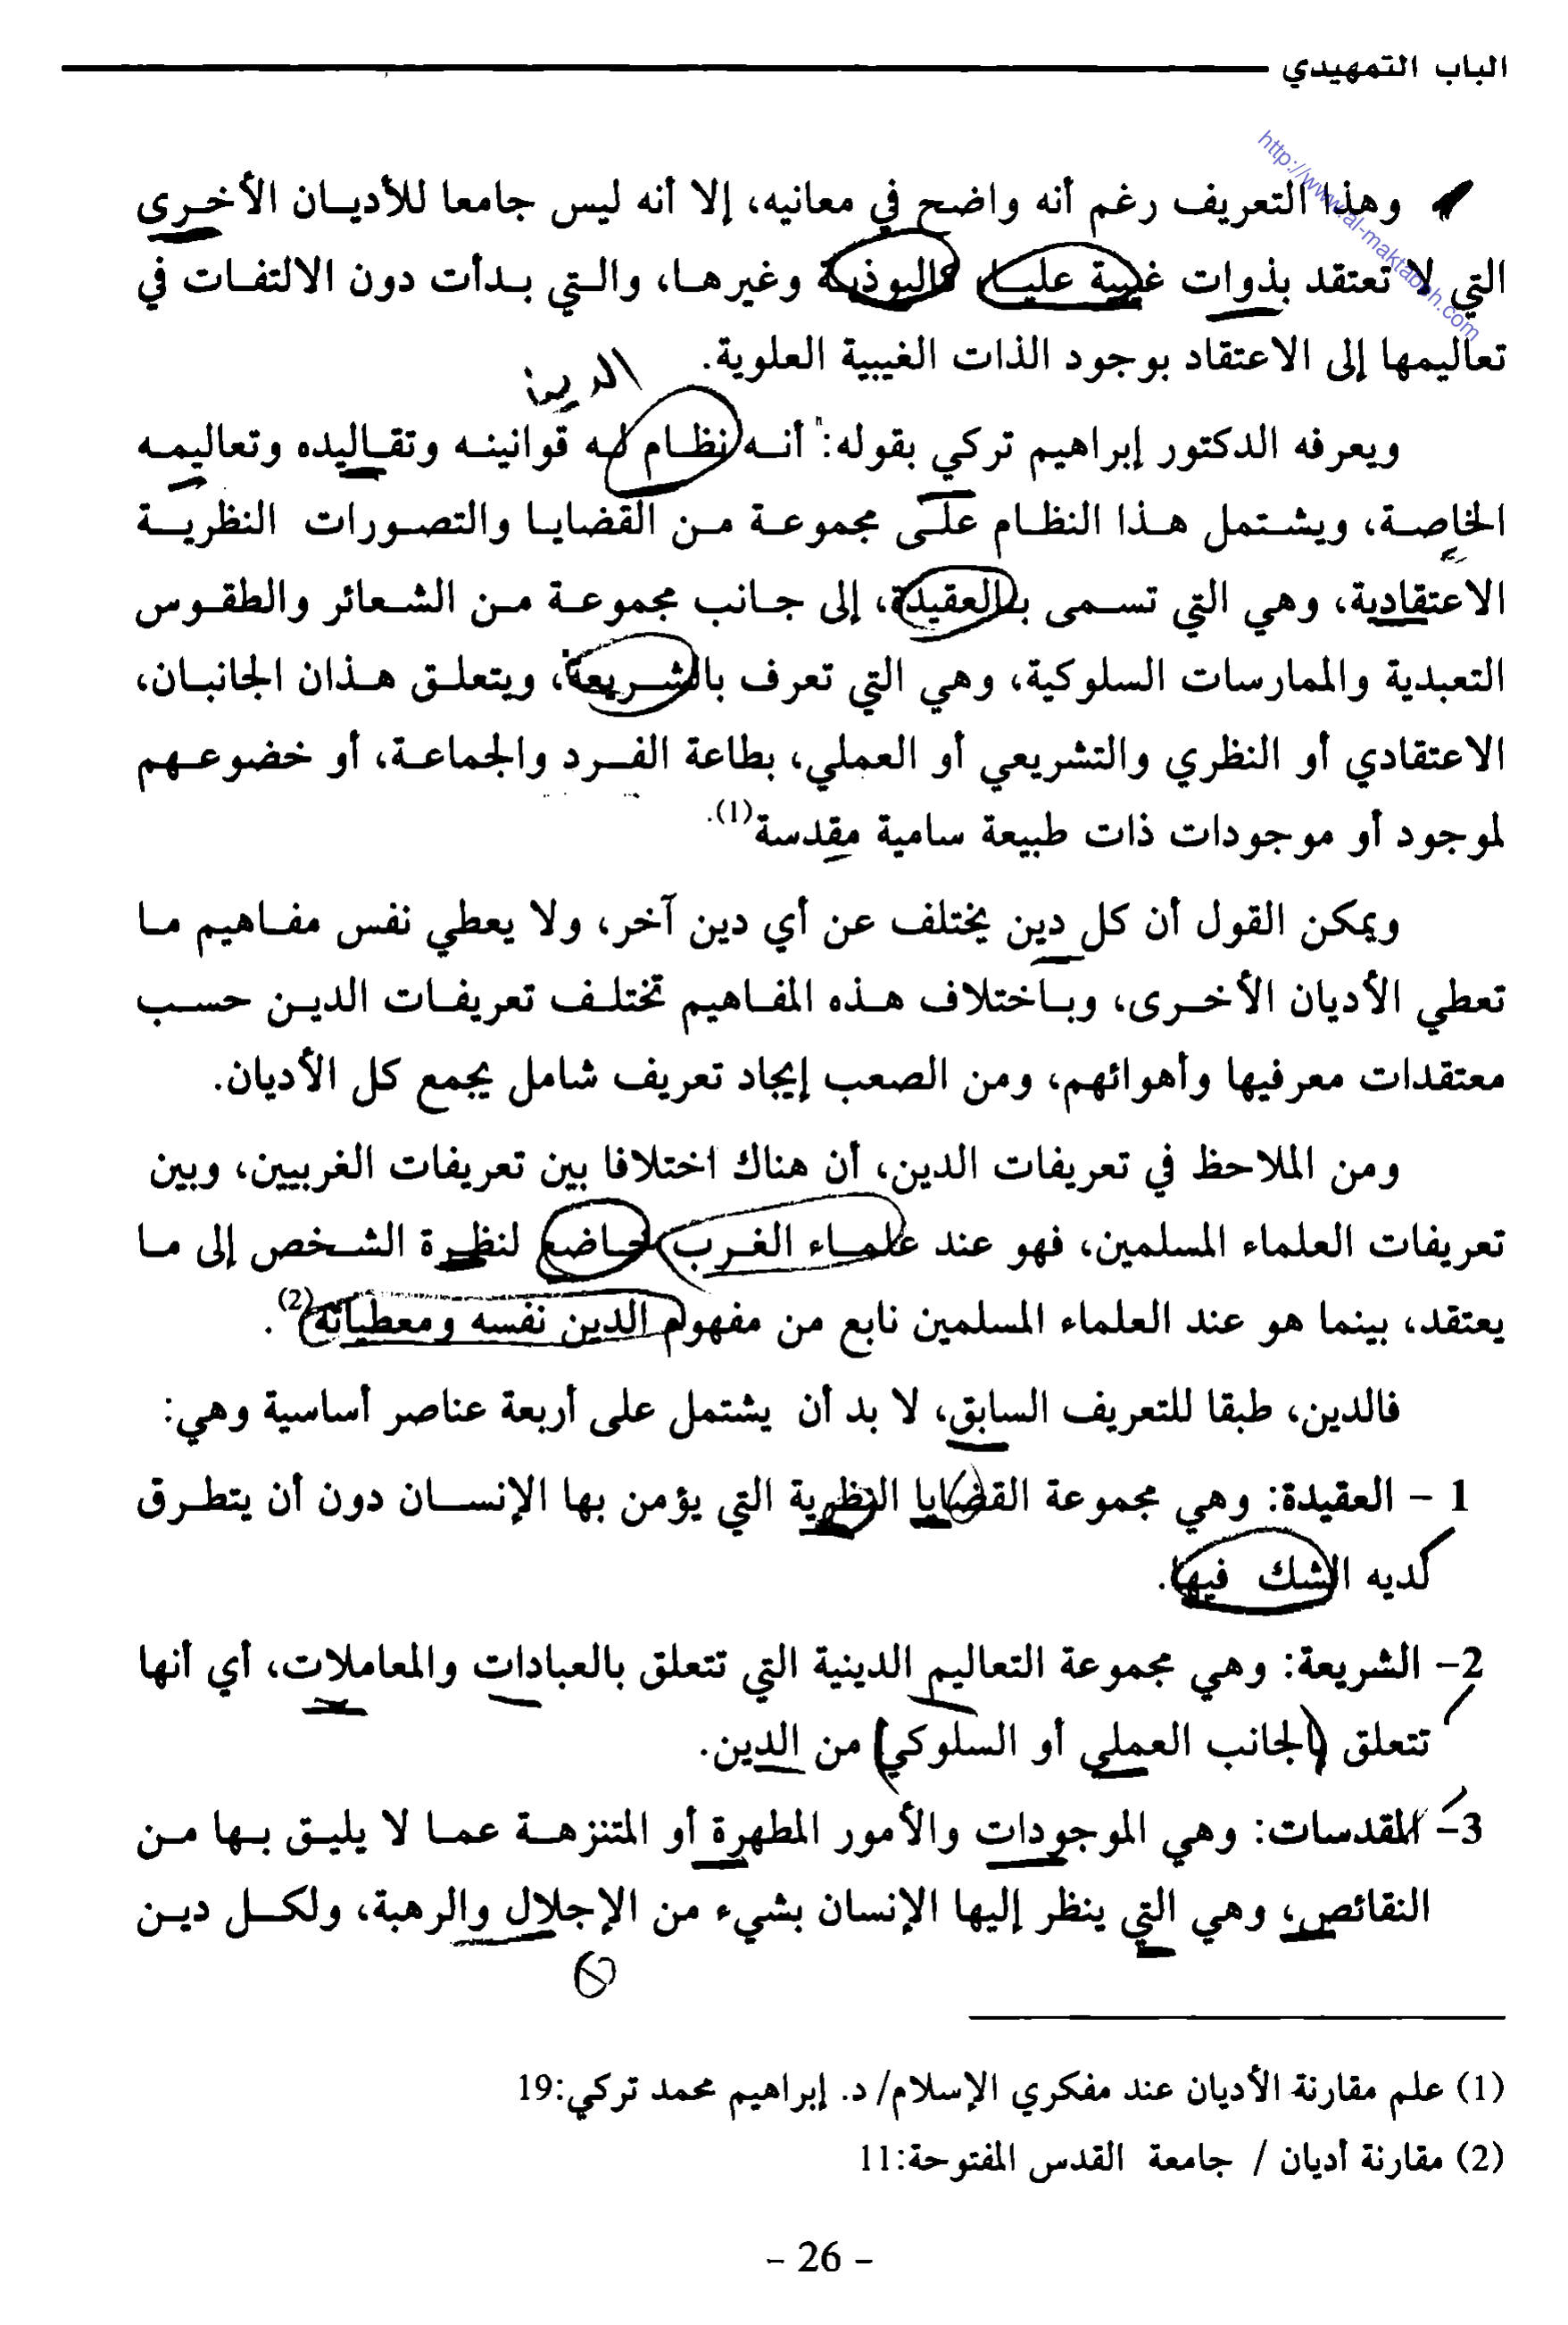 الباب التمهيدي
http://www.al-maktabeh.com
وهذا التعريف رغم أنه واضح في معانيه، إلا أنه ليس جامعا للأديان الأخرى
التي لا تعتقد بذوات غيبية عليا، كالبوذية وغيرها، والتي بدأت دون الالتفات في
تعاليمها إلى الاعتقاد بوجود الذات الغيبية العلوية.
الدين:
ويعرفه الدكتور إبراهيم تركي بقوله:" أنه نظام له قوانينه وتقاليده وتعاليمه
الخاصة، ويشتمل هذا النظام على مجموعة من القضايا والتصورات النظرية
الاعتقادية، وهي التي تسمى بالعقيدة، إلى جانب مجموعة من الشعائر والطقوس
التعبدية والممارسات السلوكية، وهي التي تعرف بالشريعة، ويتعلق هذان الجانبان،
الاعتقادي أو النظري والتشريعي أو العملي، بطاعة الفرد والجماعة، أو خضوعهم
لموجود أو موجودات ذات طبيعة سامية مقدسة(1).
ويمكن القول أن كل دين يختلف عن أي دين آخر، ولا يعطي نفس مفاهيم ما
تعطي الأديان الأخرى، وباختلاف هذه المفاهيم تختلف تعريفات الدين حسب
معتقدات معرفيها وأهوائهم، ومن الصعب إيجاد تعريف شامل يجمع كل الأديان.
ومن الملاحظ في تعريفات الدين، أن هناك اختلافا بين تعريفات الغربيين، وبين
تعريفات العلماء المسلمين، فهو عند علماء الغرب خاضع لنظرة الشخص إلى ما
يعتقد، بينما هو عند العلماء المسلمين نابع من مفهوم الدين نفسه ومعطياته(2).
فالدين، طبقا للتعريف السابق، لا بد أن يشتمل على أربعة عناصر أساسية وهي:
1 - العقيدة: وهي مجموعة القضايا النظرية التي يؤمن بها الإنسان دون أن يتطرق
لديه الشك فيها.
2- الشريعة: وهي مجموعة التعاليم الدينية التي تتعلق بالعبادات والمعاملات، أي أنها
تتعلق بالجانب العملي أو السلوكي من الدين.
3- المقدسات: وهي الموجودات والأمور المطهرة أو المتنزهة عما لا يليق بها من
النقائص، وهي التي ينظر إليها الإنسان بشيء من الإجلال والرهبة، ولكل دين
(1) علم مقارنة الأديان عند مفكري الإسلام/ د. إبراهيم محمد تركي:19
(2) مقارنة أديان / جامعة القدس المفتوحة:11
- 26 -